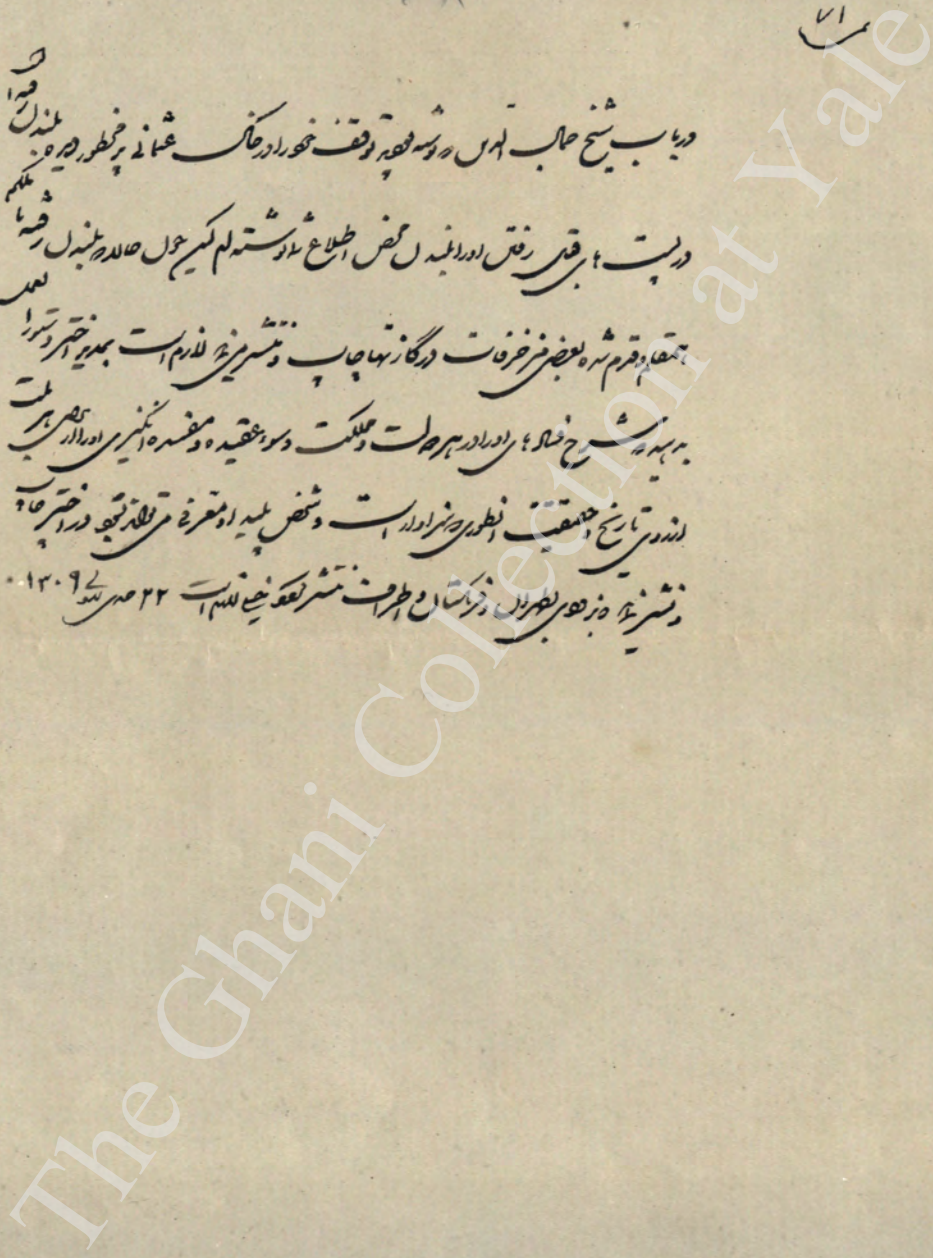 نمره ۷۱
در باب شیخ جمال الدین که نوشته بودید توقف خود را در خاک عثمانی پرخطر دیده بلندن رفته است
در پست های قبل رفتن او را بلندن محض اطلاع شما نوشته ام لیکن چون حالا که بلندن رفته با ملکم
همقلم و قدم شده بعضی مزخرفات در گازتها چاپ و منتشر می نماید لازم است بمدیر اختر دستورالعمل
بدهید که شرح فسادهای او را در هر دولت و مملکت و سوء عقیده و مفسده انگیزی او را در هر ملت
از روی تاریخ و حقیقت انطوری که سزاوار است و شخص پلید او معرفی می تواند بشود در اختر چاپ
و نشر نماید که بزودی بطهران و فرنگستان و اطراف منتشر شود خیلی لازم است ۲۲ جمادی الاولی ۱۳۰۹
The Ghani Collection at Yale